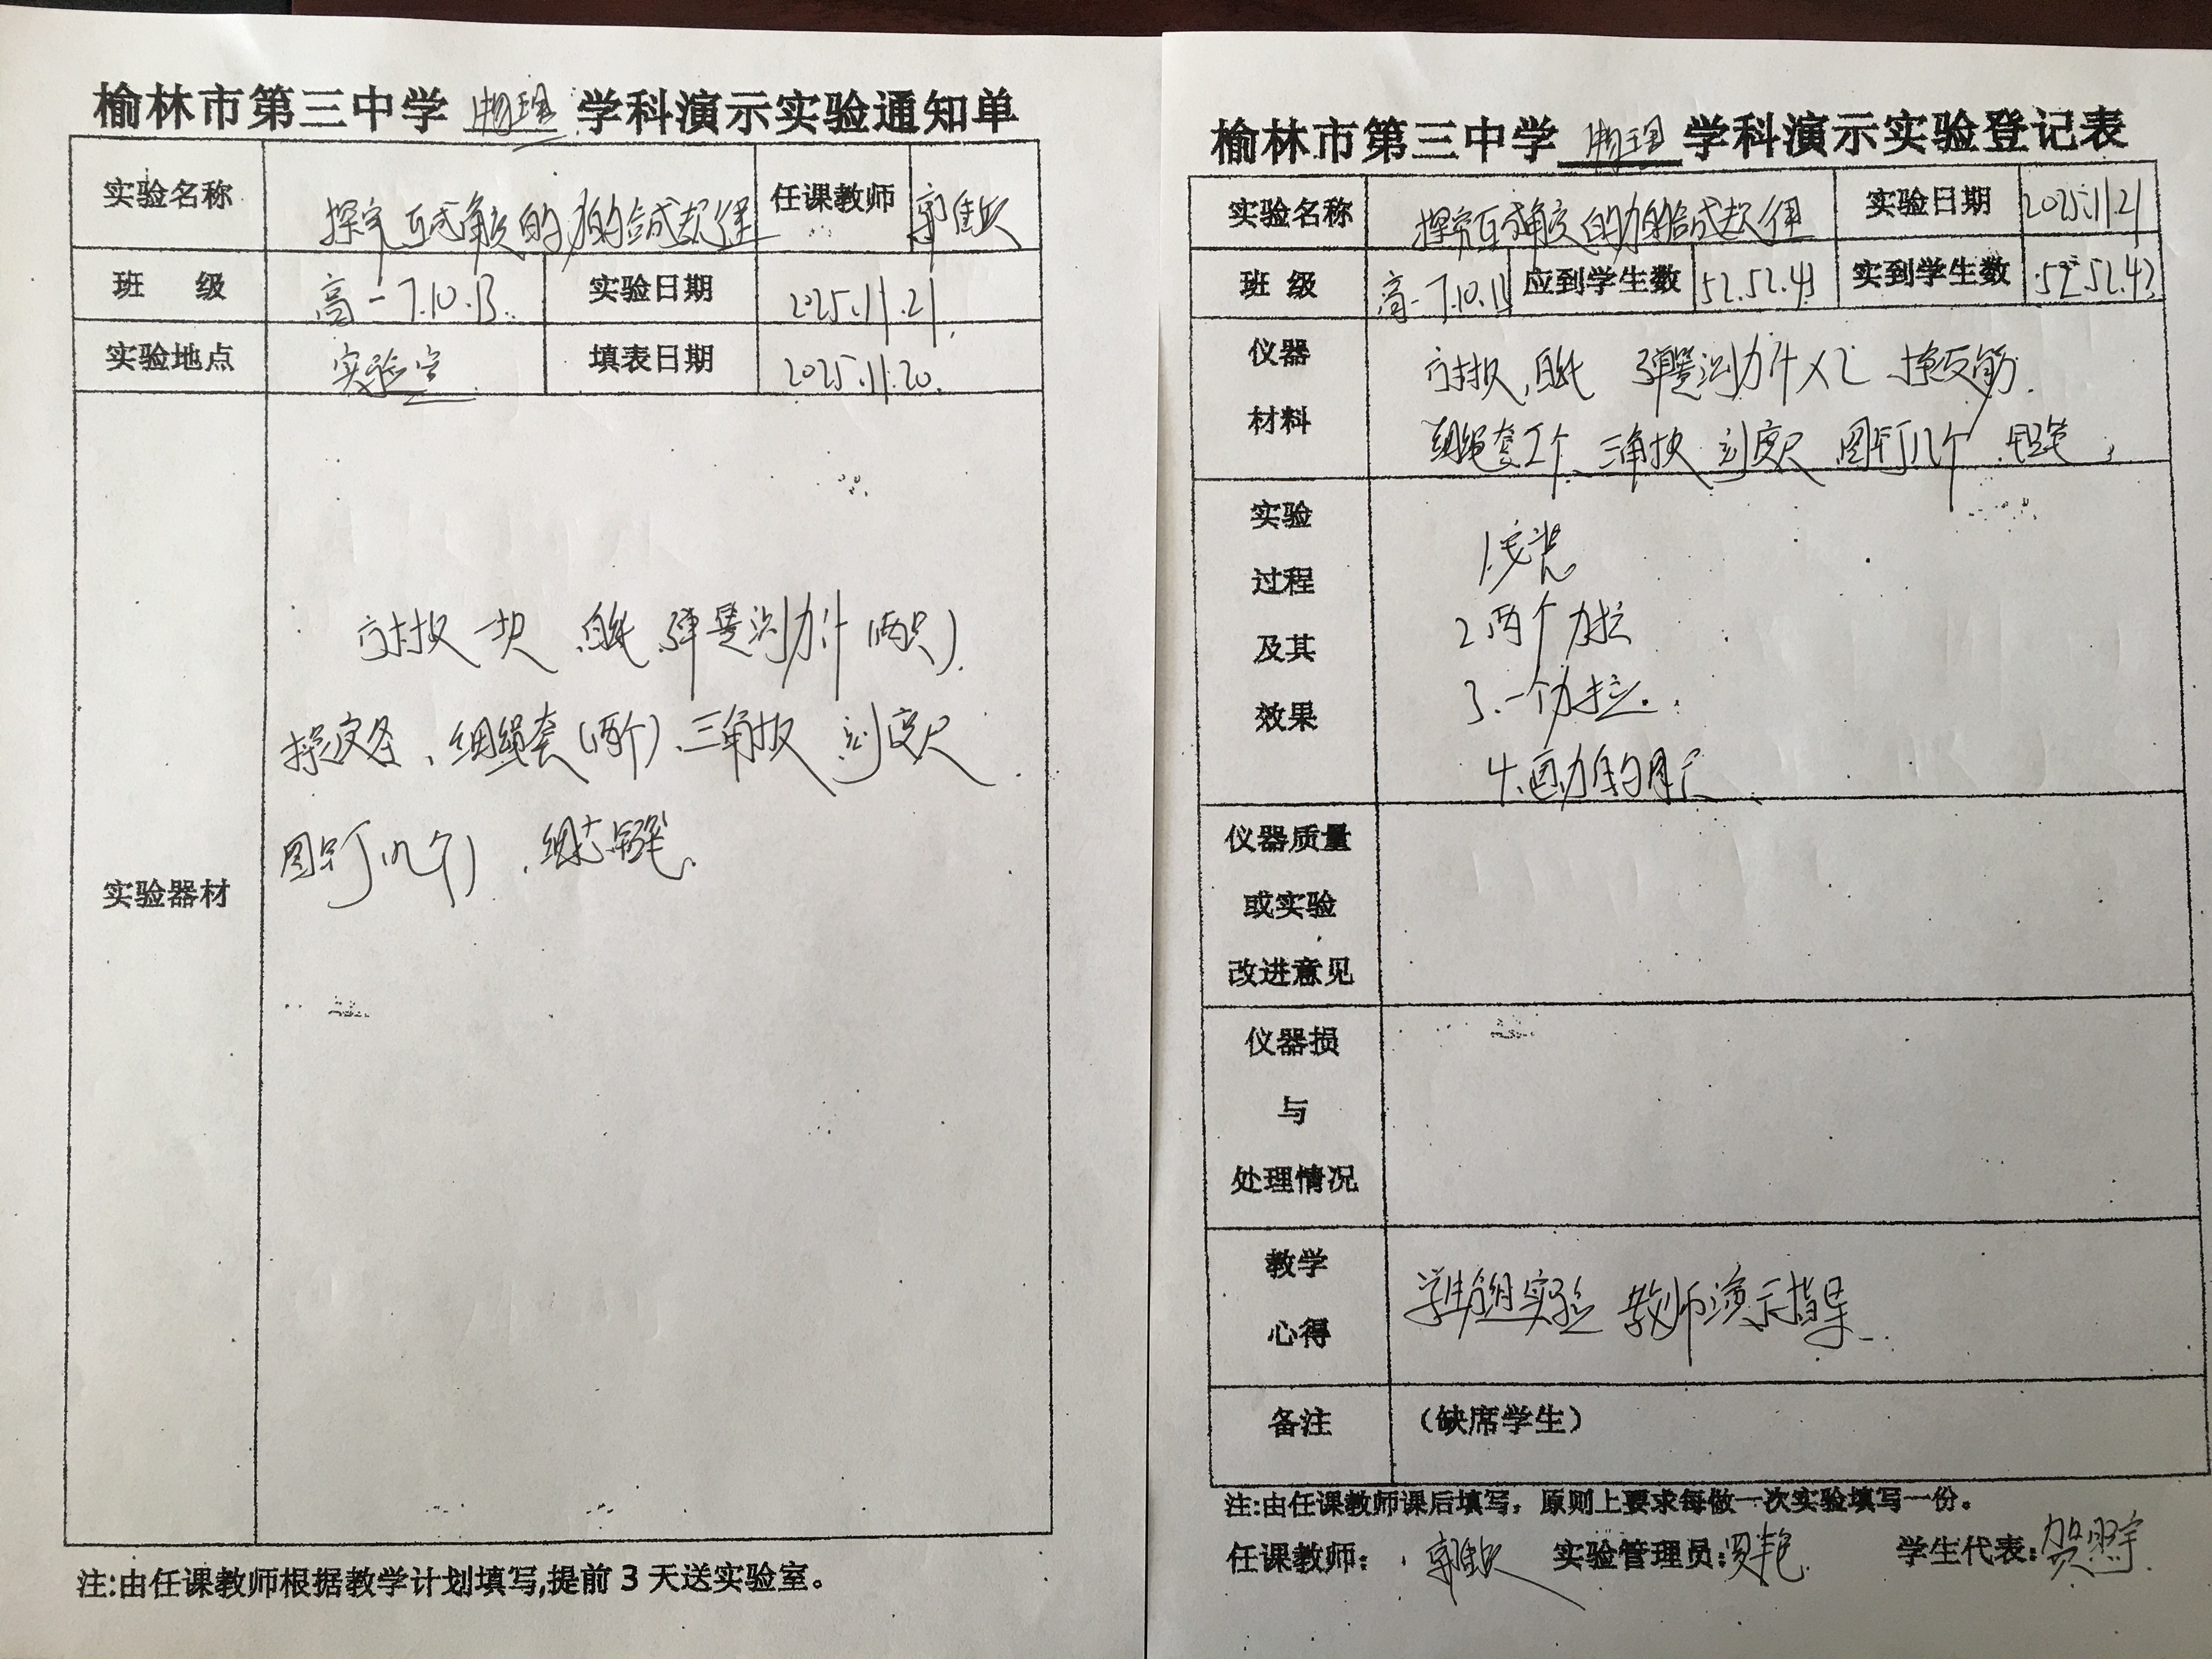 榆林市第三中学 物理 学科演示实验通知单
实验名称 探究互成角度的力的合成规律 任课教师 郭
班 级 高一7.10.13. 实验日期 2025.11.21.
实验地点 实验室 填表日期 2025.11.20.
实验器材
方木板一块、白纸、弹簧测力计(两只).
橡皮条、细绳套(两个)、三角板、刻度尺.
图钉(几个)、细芯铅笔.
注:由任课教师根据教学计划填写,提前3天送实验室。
榆林市第三中学 物理 学科演示实验登记表
实验名称 探究互成角度的力的合成规律 实验日期 2025.11.21
班 级 高一7.10.13 应到学生数 52.52.43 实到学生数 52.52.43
仪器
材料
方木板,白纸 弹簧测力计×2 橡皮筋.
细绳套2个、三角板 刻度尺 图钉几个 铅笔
实验
过程
及其
效果
1.安装
2.两个力拉
3.一个力拉.
4.画力的图示
仪器质量
或实验
改进意见
仪器损
与
处理情况
教学
心得
学生分组实验 教师演示指导.
备注 (缺席学生)
注:由任课教师课后填写，原则上要求每做一次实验填写一份。
任课教师: 郭 实验管理员: 贾艳 学生代表: 贺